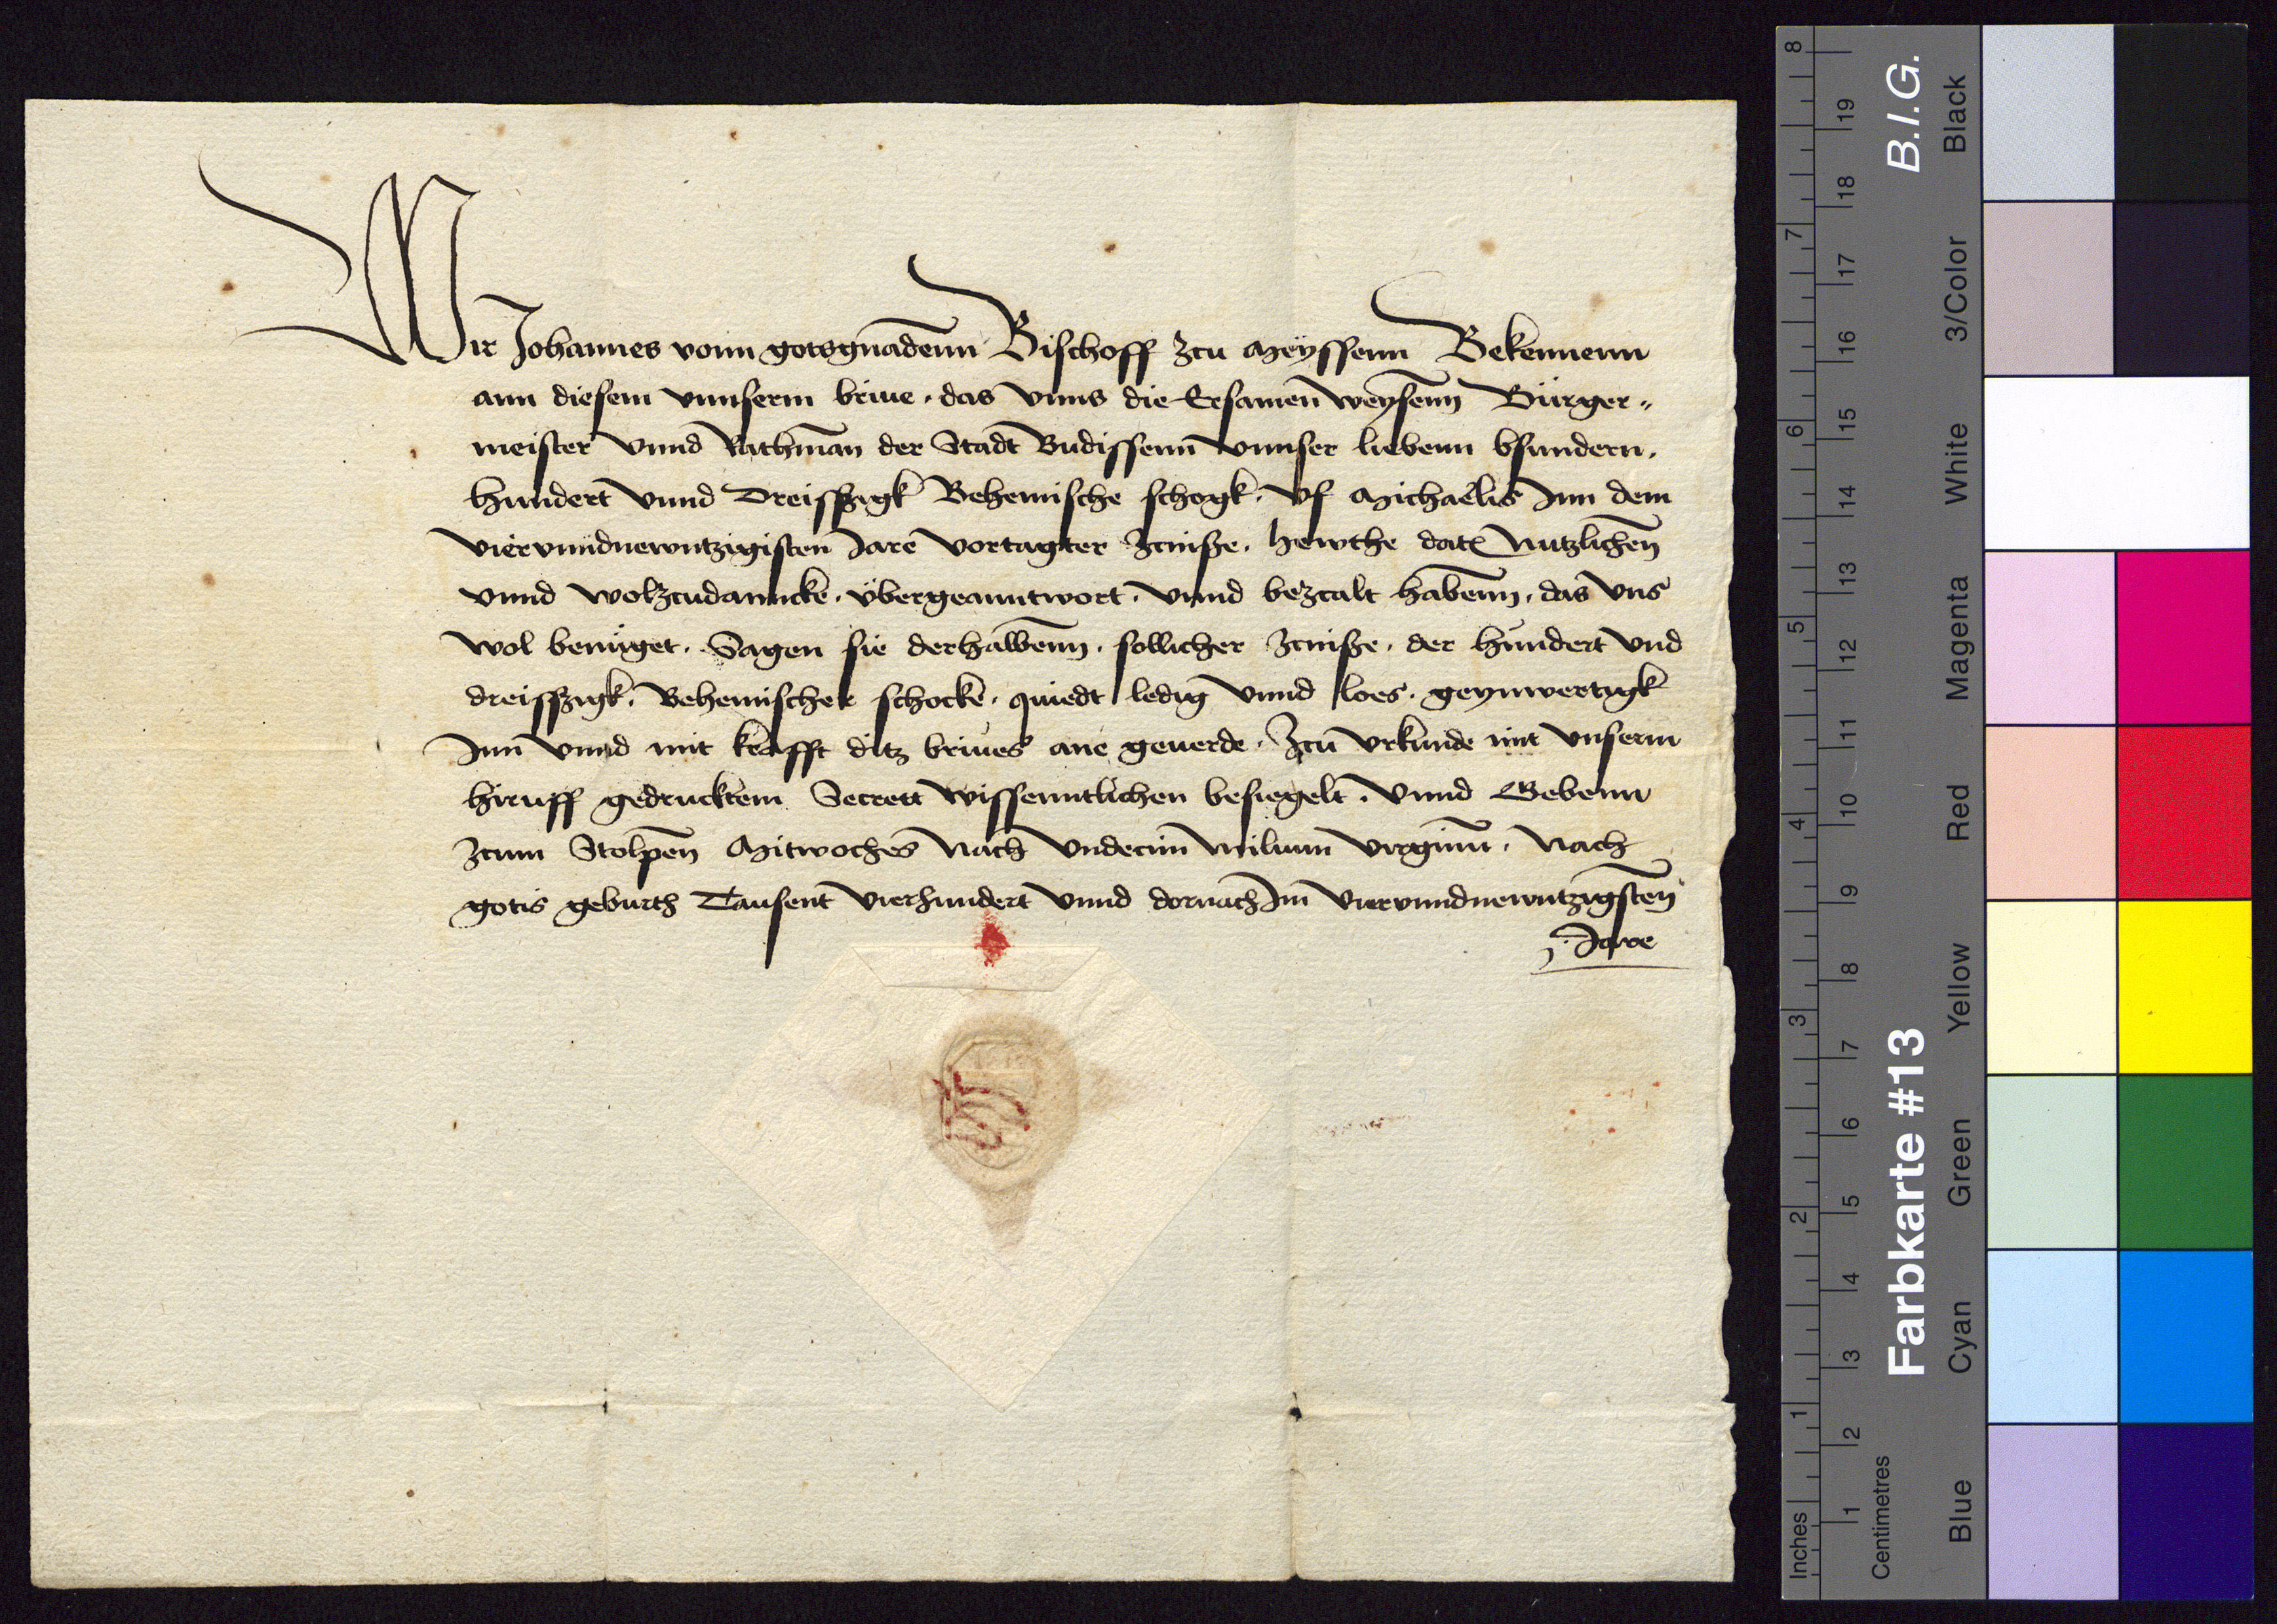 Wir Johannes vonn gotsgnadenn Bischoff zcu Meyssenn Bekennenn
ann diesem vnnserm briue · das vnns die Ersamen weysenn Bürger„
meister vnnd Rathman der Stadt Budissenn vnnser liebenn bsundern ·
hundert vnnd Dreisszigk Behemische schogk · vf Michaelis Inn dem
viervnndnewntzigisten Jare vortagter zcinsze · hewthe dato nutzlichen
vnnd wolzcudanncke · übergeanntwort · vnnd bezcalt habenn · das vns
wol benuget · Sagen sie derhalbenn · sollicher zcinsze · der hundert vnd
dreisszigk · Behemischer schocke · quiedt ledig vnnd loes · geynwertigk
Inn vnnd mit krafft ditz briues ane geuerde · Zcu vrkunde mit vnserm
hiruff gedrucktem Secrett wissenntlichen besiegelt · vnnd Gebenn
zcum Stolpen Mitwoches nach vndecim milium virginum · nach
gotis geburth Tausent vierhundert vnnd dornach Im viervnndnewntzigsten
Jare
Inches
1
2
3
4
5
6
7
8
Centimetres
1
2
3
4
5
6
7
8
9
10
11
12
13
14
15
16
17
18
19
Farbkarte #13
B.I.G.
Blue
Cyan
Green
Yellow
Red
Magenta
White
3/Color
Black